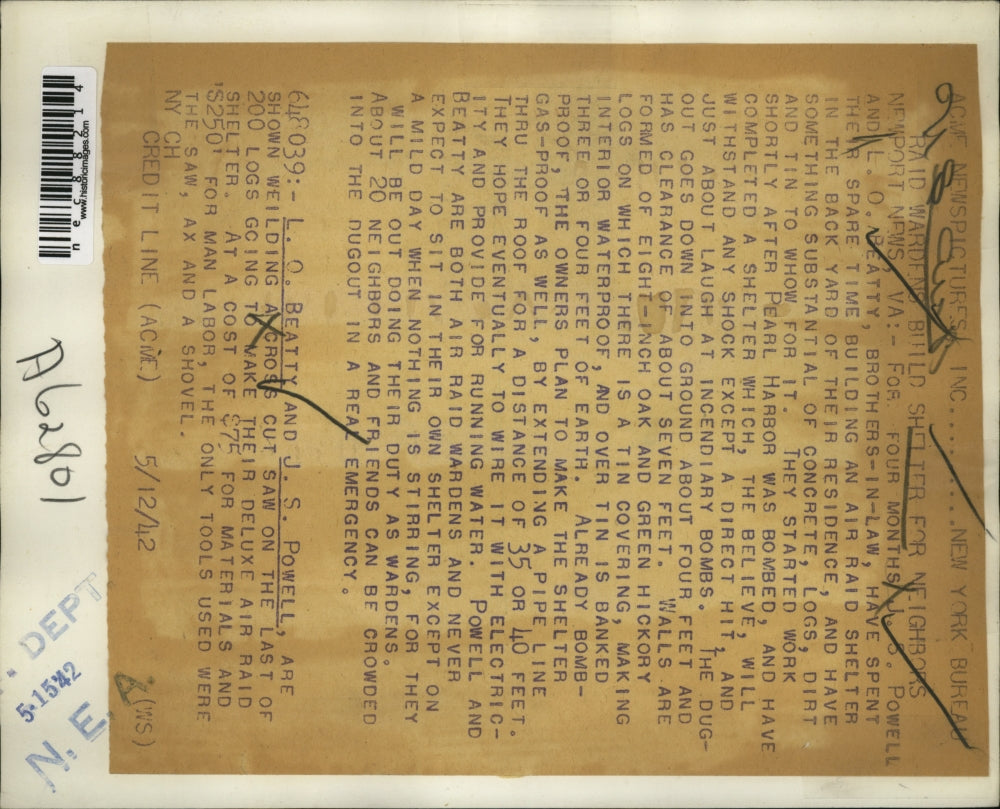 ACME NEWSPICTURES, INC..........NEW YORK BUREAU
RAID WARDENS BUILD SHELTER FOR NEIGHBORS
NEWPORT NEWS, VA:- FOR FOUR MONTHS J.S. POWELL
AND L. O. BEATTY, BROTHERS-IN-LAW, HAVE SPENT
THEIR SPARE TIME BUILDING AN AIR RAID SHELTER
IN THE BACK YARD OF THEIR RESIDENCE, AND HAVE
SOMETHING SUBSTANTIAL OF CONCRETE, LOGS, DIRT
AND TIN TO SHOW FOR IT. THEY STARTED WORK
SHORTLY AFTER PEARL HARBOR WAS BOMBED, AND HAVE
COMPLETED A SHELTER WHICH, THE BELIEVE, WILL
WITHSTAND ANY SHOCK EXCEPT A DIRECT HIT, AND
JUST ABOUT LAUGH AT INCENDIARY BOMBS. THE DUG-
OUT GOES DOWN INTO GROUND ABOUT FOUR FEET AND
HAS CLEARANCE OF ABOUT SEVEN FEET. WALLS ARE
FORMED OF EIGHT-INCH OAK AND GREEN HICKORY
LOGS ON WHICH THERE IS A TIN COVERING, MAKING
INTERIOR WATERPROOF, AND OVER TIN IS BANKED
THREE OR FOUR FEET OF EARTH. ALREADY BOMB-
PROOF, THE OWNERS PLAN TO MAKE THE SHELTER
GAS-PROOF AS WELL, BY EXTENDING A PIPE LINE
THRU THE ROOF FOR A DISTANCE OF 35 OR 40 FEET.
THEY HOPE EVENTUALLY TO WIRE IT WITH ELECTRIC-
ITY AND PROVIDE FOR RUNNING WATER. POWELL AND
BEATTY ARE BOTH AIR RAID WARDENS AND NEVER
EXPECT TO SIT IN THEIR OWN SHELTER EXCEPT ON
A MILD DAY WHEN NOTHING IS STIRRING, FOR THEY
WILL BE OUT DOING THEIR DUTY AS WARDENS.
ABOUT 20 NEIGHBORS AND FRIENDS CAN BE CROWDED
INTO THE DUGOUT IN A REAL EMERGENCY.
648039:- L. O. BEATTY AND J. S. POWELL, ARE
SHOWN WEILDING ACROSS CUT SAW ON THE LAST OF
200 LOGS GOING TO MAKE THEIR DELUXE AIR RAID
SHELTER. AT A COST OF $75 FOR MATERIALS AND
'$250' FOR MAN LABOR, THE ONLY TOOLS USED WERE
THE SAW, AX AND A SHOVEL.
NY CH
CREDIT LINE (ACME) 5/12/42 (WS)
nec58214
www.historicimages.com
A62801
DEPT
5-15-42
N. E. A.